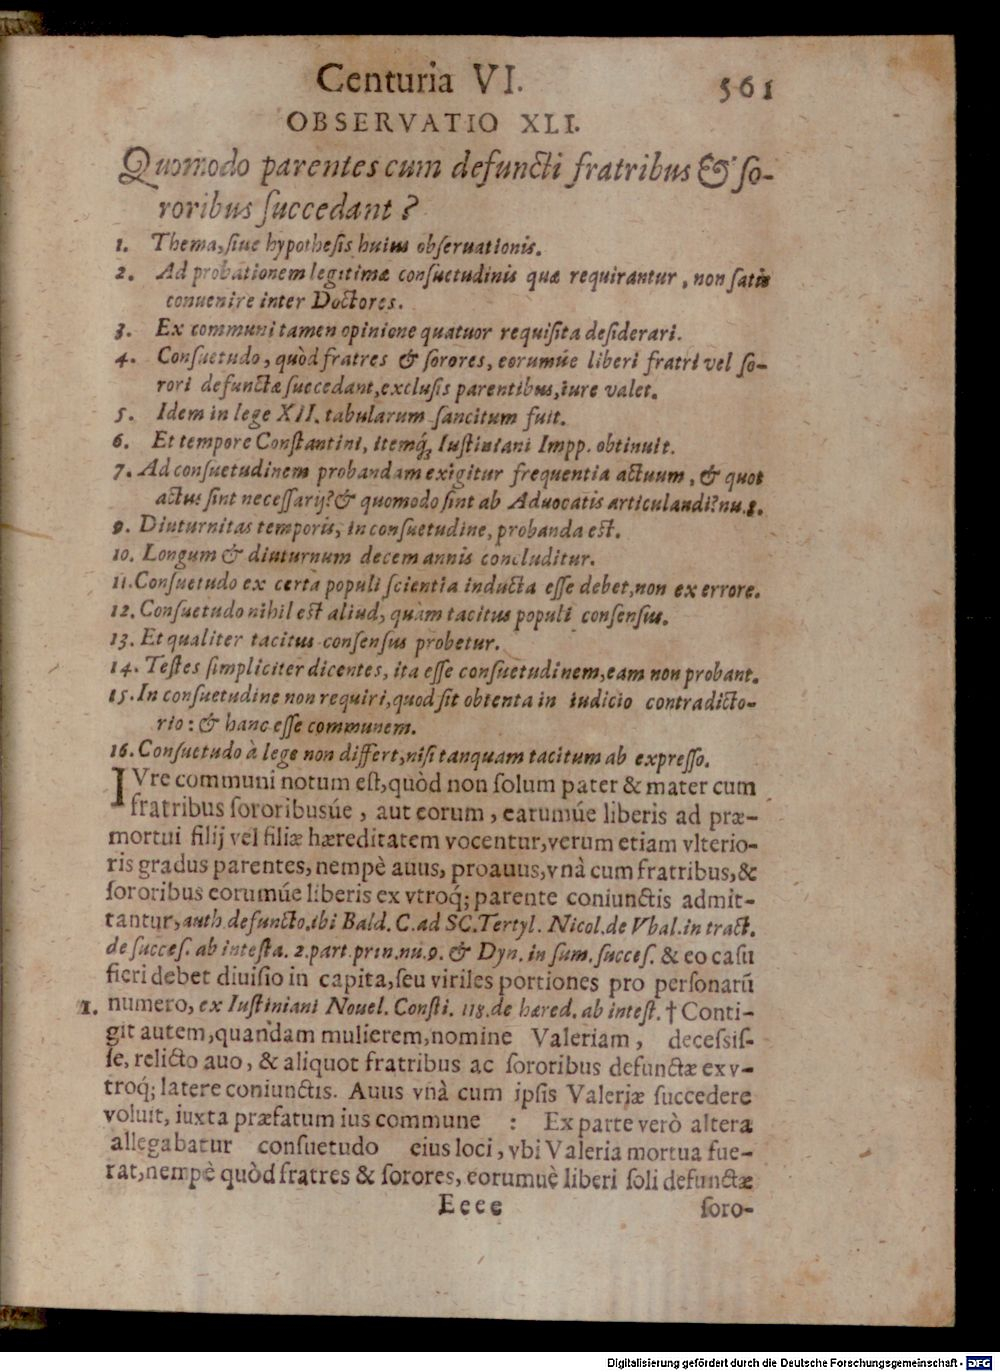 Centuria VI. 561
OBSERVATIO XLI.
Quomodo parentes cum defuncti fratribus & ſo-
roribus ſuccedant?
1. Thema, ſiue hypotheſis huius obſeruationis.
2. Ad probationem legitimæ conſuetudinis quæ requirantur, non ſatis
conuenire inter Doctores.
3. Ex communi tamen opinione quatuor requiſita deſiderari.
4. Conſuetudo, quòd fratres & ſorores, eorumúe liberi fratri vel ſo-
rori defunctæ ſuccedant, excluſis parentibus, iure valet.
5. Idem in lege XII. tabularum ſancitum fuit.
6. Et tempore Conſtantini, itemq́; Iuſtiniani Impp. obtinuit.
7. Ad conſuetudinem probandam exigitur frequentia actuum, & quot
actus ſint neceſſarij? & quomodo ſint ab Aduocatis articulandi? nu. 8.
9. Diuturnitas temporis, in conſuetudine, probanda est.
10. Longum & diuturnum decem annis concluditur.
11. Conſuetudo ex certa populi ſcientia inducta eſſe debet, non ex errore.
12. Conſuetudo nihil est aliud, quàm tacitus populi conſenſus.
13. Et qualiter tacitus conſenſus probetur.
14. Teſtes ſimpliciter dicentes, ita eſſe conſuetudinem, eam non probant.
15. In conſuetudine non requiri, quod ſit obtenta in iudicio contradicto-
rio: & hanc eſſe communem.
16. Conſuetudo à lege non differt, niſi tanquam tacitum ab expreſſo.
IVre communi notum eſt, quòd non ſolum pater & mater cum
fratribus ſororibusúe, aut eorum, earumúe liberis ad præ-
mortui filij vel filiæ hæreditatem vocentur, verum etiam vlterio-
ris gradus parentes, nempè auus, proauus, vnà cum fratribus, &
ſororibus eorumúe liberis ex vtroq́; parente coniunctis admit-
tantur, auth. defuncto. ibi Bald. C. ad SC. Tertyl. Nicol. de Vbal. in tract.
de ſucceſ. ab inteſta. 2. part. prin. nu. 9. & Dyn. in ſum. ſucceſ. & eo caſu
fieri debet diuiſio in capita, ſeu viriles portiones pro perſonarū
1. numero, ex Iuſtiniani Nouel. Conſti. 118. de hæred. ab inteſt. † Conti-
git autem, quandam mulierem, nomine Valeriam, deceſſiſ-
ſe, relicto auo, & aliquot fratribus ac ſororibus defunctæ ex v-
troq́; latere coniunctis. Auus vnà cum ipſis Valeriæ ſuccedere
voluit, iuxta præfatum ius commune : Ex parte verò altera
allegabatur conſuetudo eius loci, vbi Valeria mortua fue-
rat, nempè quòd fratres & ſorores, eorumuè liberi ſoli defunctæ
Eeee ſoro-
Digitalisierung gefördert durch die Deutsche Forschungsgemeinschaft - DFG